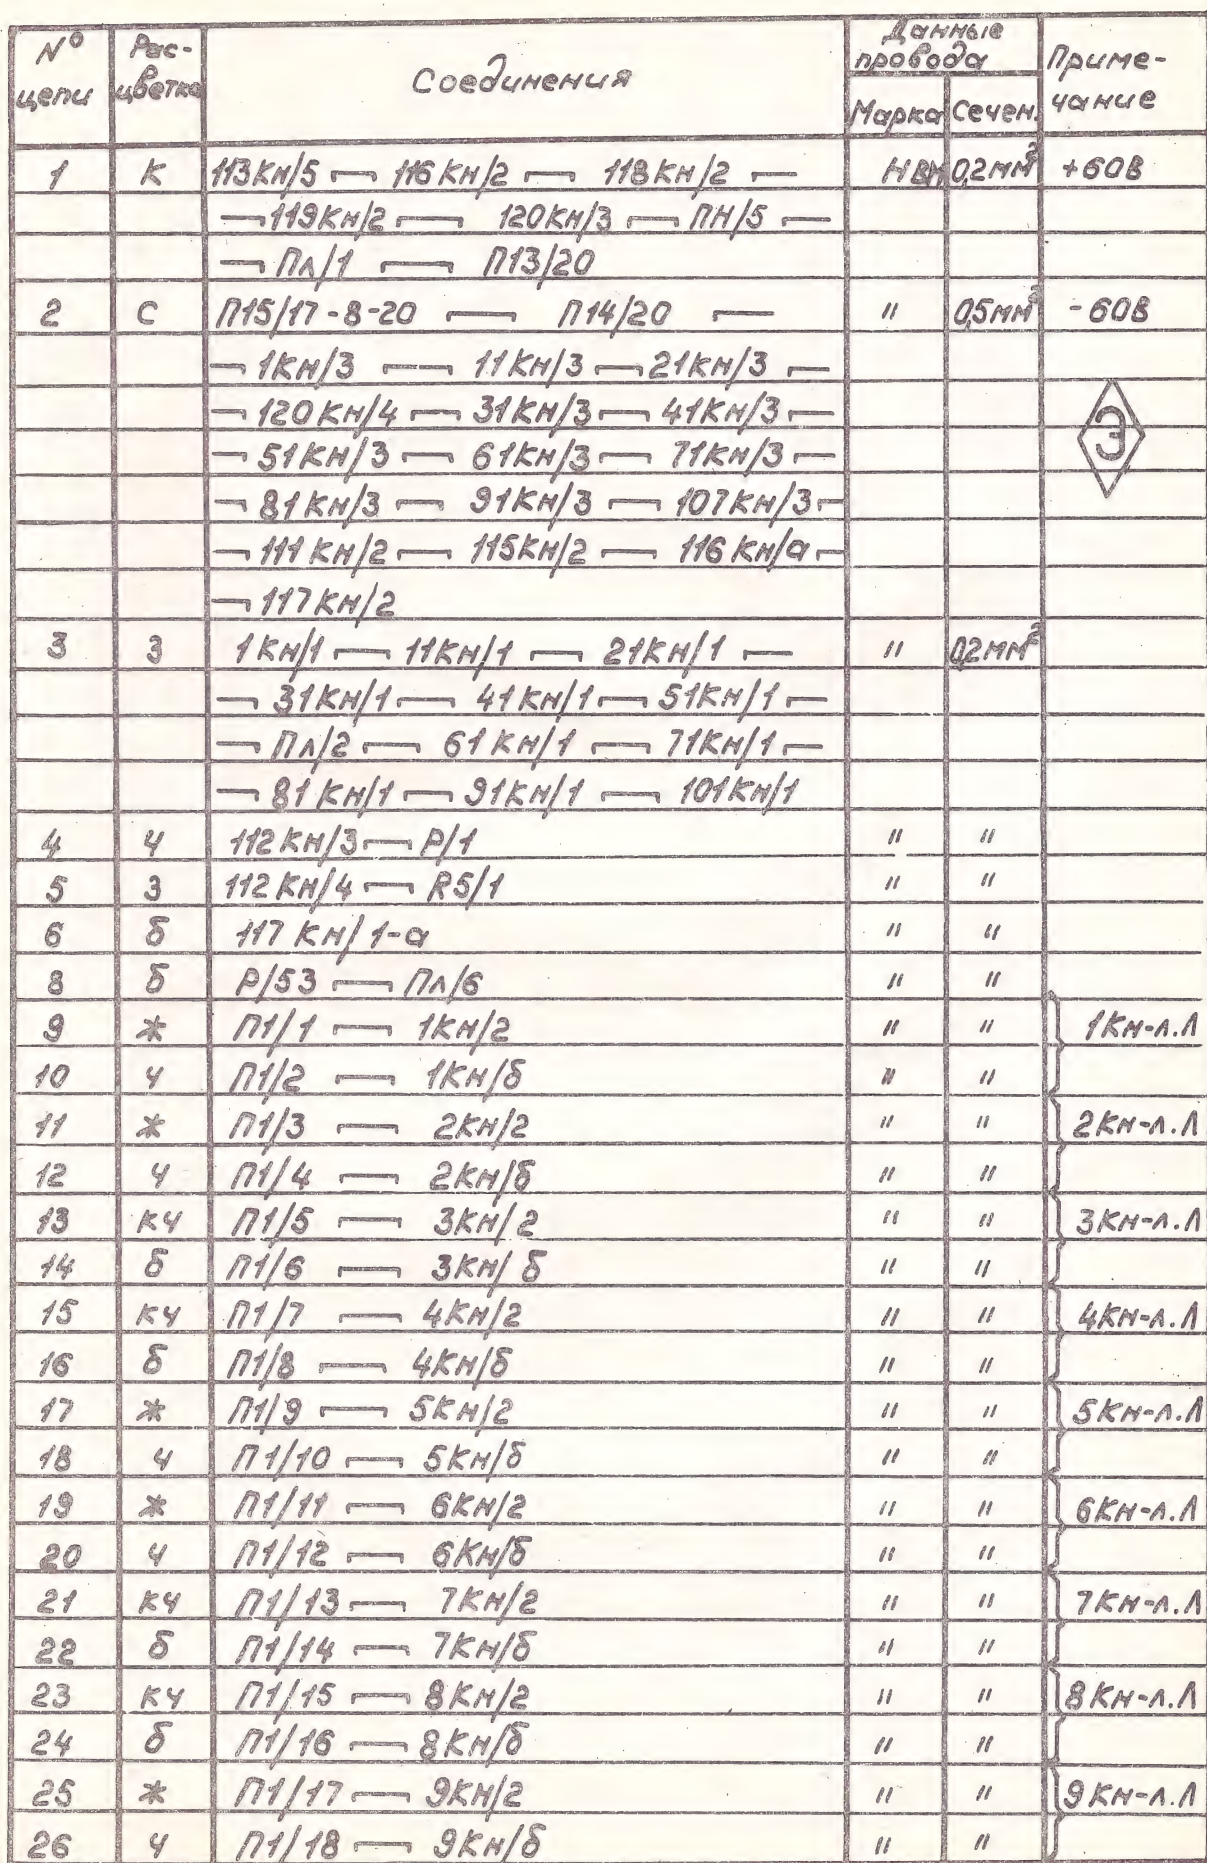 № цепи Рас-цветка Соединения Данные провода Приме-чание
Марка Сечен.
1 К 113Кн/5 — 116Кн/2 — 118Кн/2 — НВМ 0,2мм² +60В
— 119Кн/2 — 120Кн/3 — ПН/5 —
— Пл/1 — П13/20
2 С П15/17-8-20 — П14/20 — " 0,5мм² -60В
— 1Кн/3 — 11Кн/3 — 21Кн/3 —
— 120Кн/4 — 31Кн/3 — 41Кн/3 — Э
— 51Кн/3 — 61Кн/3 — 71Кн/3 —
— 81Кн/3 — 91Кн/3 — 107Кн/3 —
— 111Кн/2 — 115Кн/2 — 116Кн/а —
— 117Кн/2
3 З 1Кн/1 — 11Кн/1 — 21Кн/1 — " 0,2мм²
— 31Кн/1 — 41Кн/1 — 51Кн/1 —
— Пл/2 — 61Кн/1 — 71Кн/1 —
— 81Кн/1 — 91Кн/1 — 101Кн/1
4 Ч 112Кн/3 — Р/1 " "
5 З 112Кн/4 — R5/1 " "
6 б 117Кн/1-а " "
8 б Р/53 — Пл/6 " "
9 Ж П1/1 — 1Кн/2 " " 1Кн-л.Л
10 Ч П1/2 — 1Кн/б " "
11 Ж П1/3 — 2Кн/2 " " 2Кн-л.Л
12 Ч П1/4 — 2Кн/б " "
13 КЧ П1/5 — 3Кн/2 " " 3Кн-л.Л
14 б П1/6 — 3Кн/б " "
15 КЧ П1/7 — 4Кн/2 " " 4Кн-л.Л
16 б П1/8 — 4Кн/б " "
17 Ж П1/9 — 5Кн/2 " " 5Кн-л.Л
18 Ч П1/10 — 5Кн/б " "
19 Ж П1/11 — 6Кн/2 " " 6Кн-л.Л
20 Ч П1/12 — 6Кн/б " "
21 КЧ П1/13 — 7Кн/2 " " 7Кн-л.Л
22 б П1/14 — 7Кн/б " "
23 КЧ П1/15 — 8Кн/2 " " 8Кн-л.Л
24 б П1/16 — 8Кн/б " "
25 Ж П1/17 — 9Кн/2 " " 9Кн-л.Л
26 Ч П1/18 — 9Кн/б " "